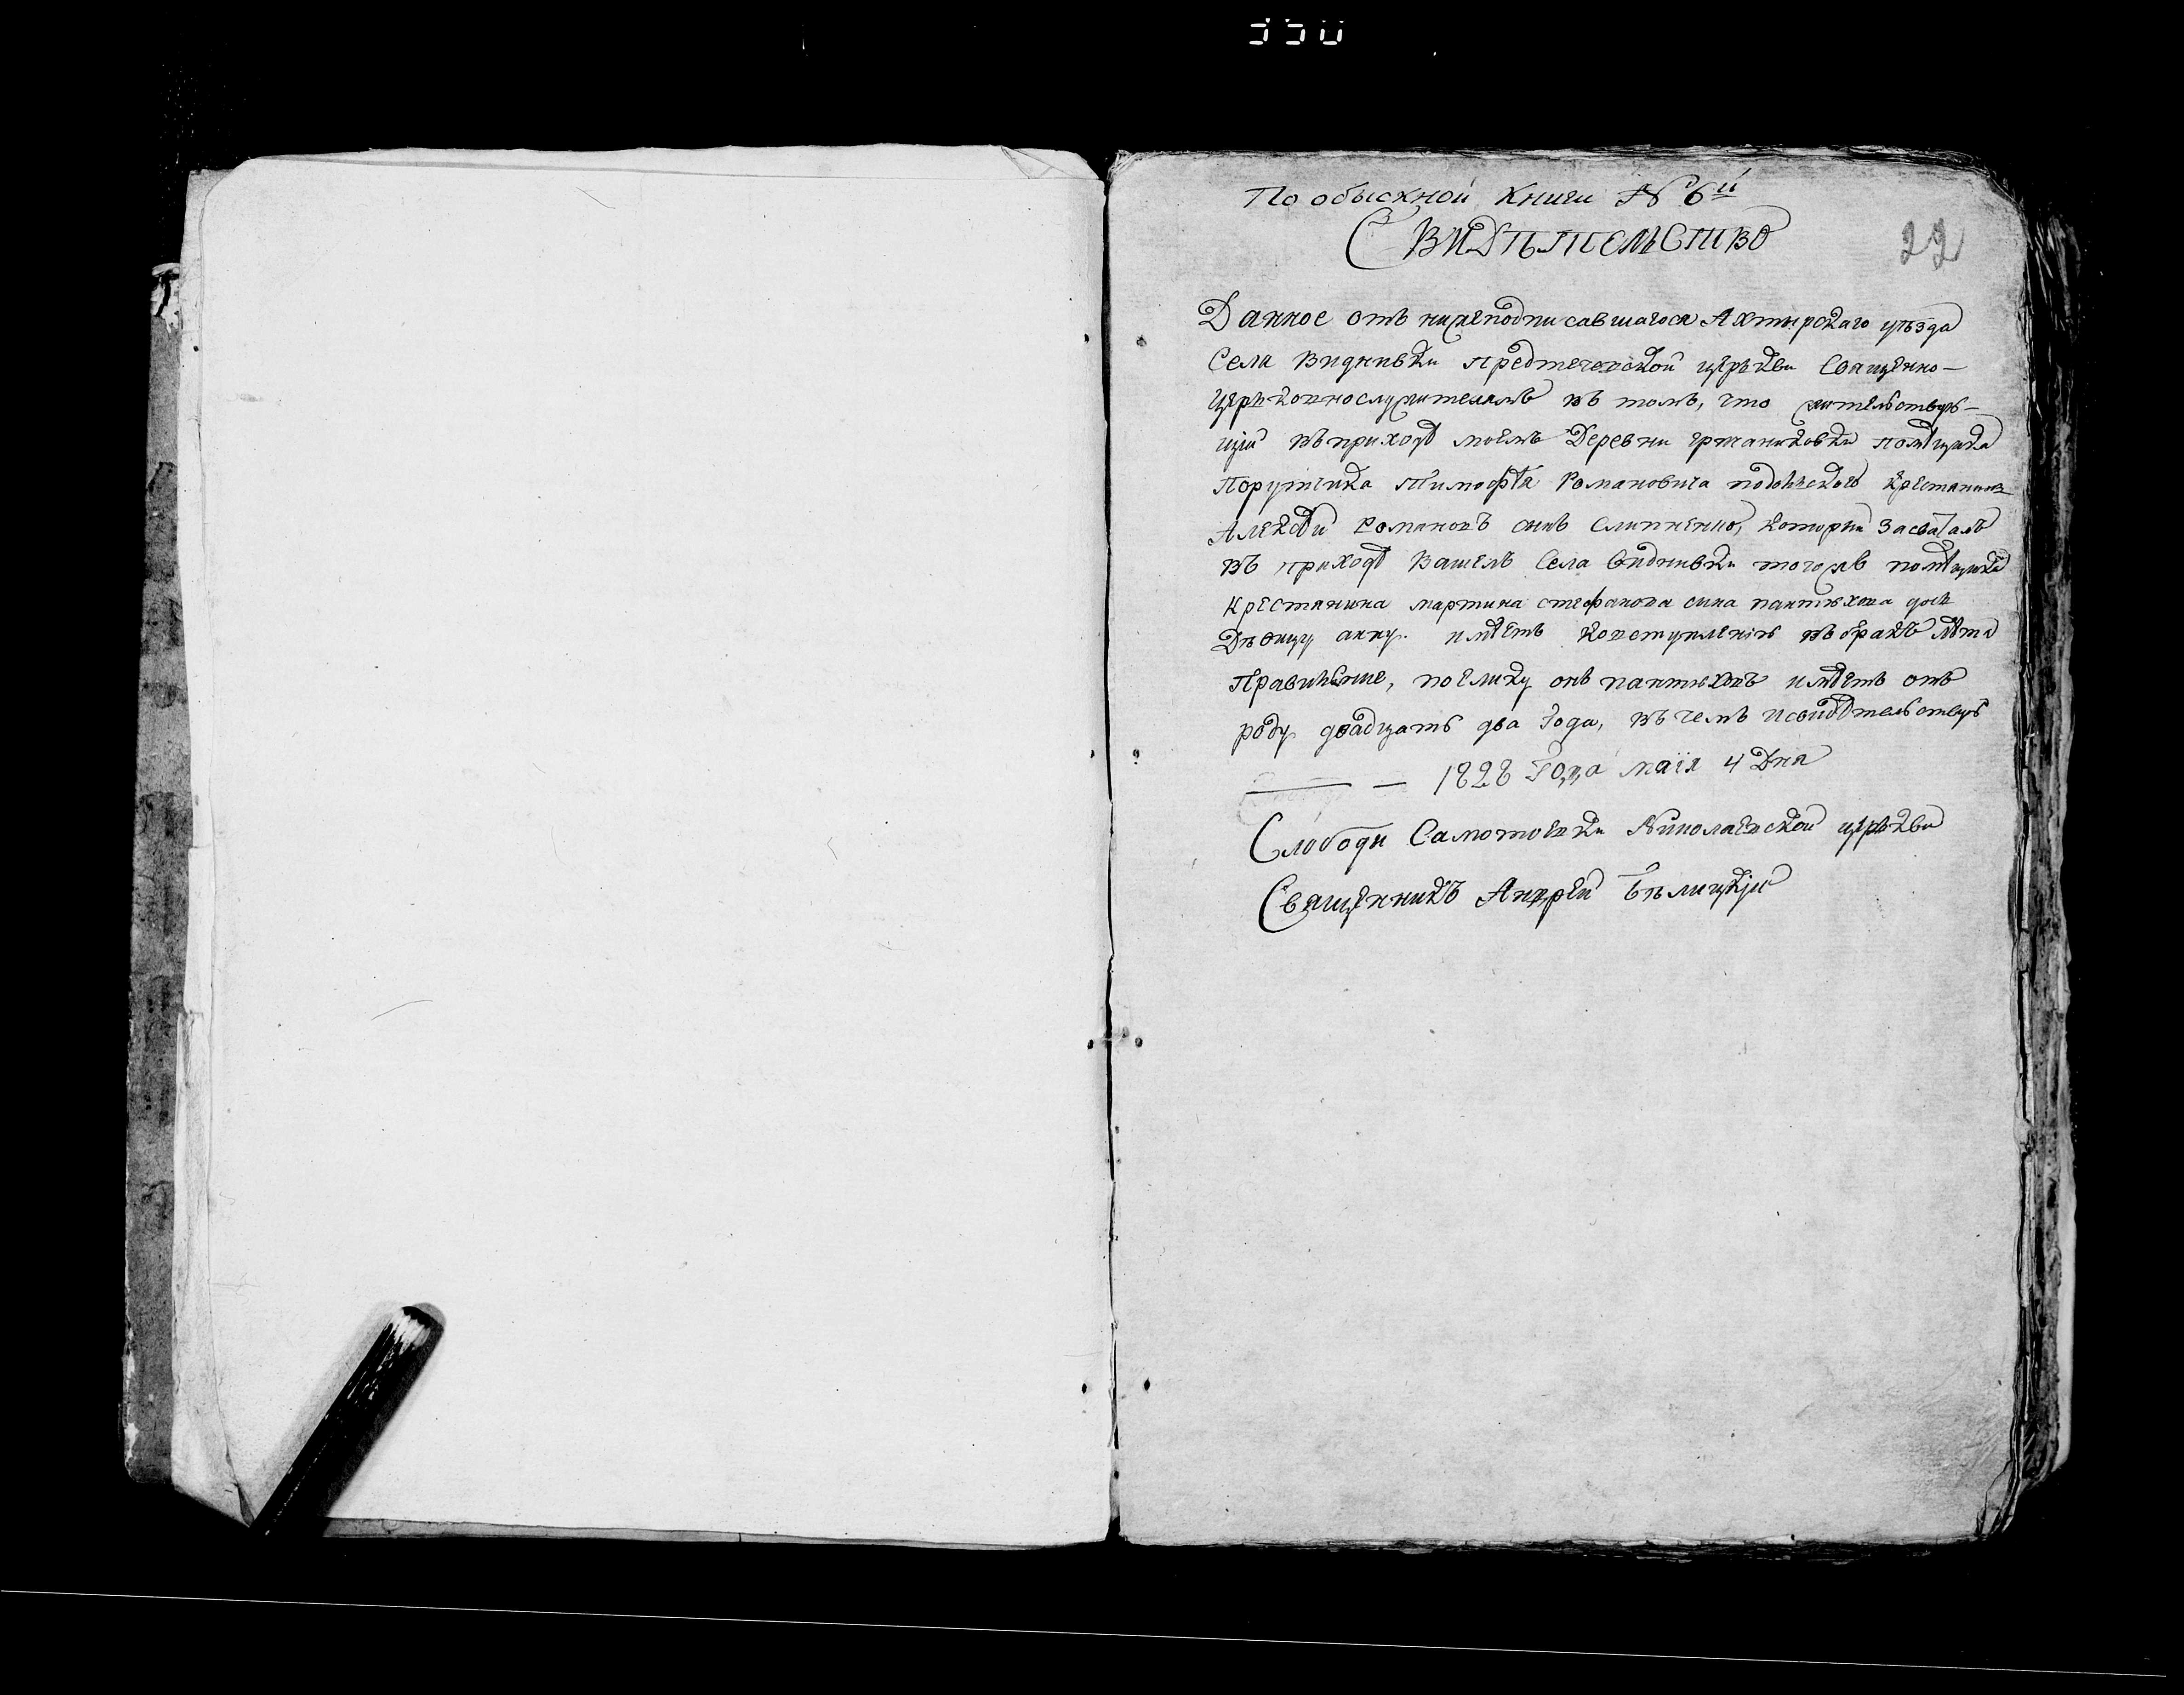 По обыскной книги № 6й
Свидѣтельство
22
Данное отъ нижеподписавшагося Ахтырскаго уѣзда
Села Видкивки Предтечевской церькви Священно-
церьковнослужителямъ въ томъ, что жительствую-
щій въ приходѣ моемъ Деревни помѣщика
Порутчика Тимофѣя Романовича крестянинъ
Алексѣй Романовъ синъ Слипченко, которий засваталъ
въ приходѣ Вашемъ Села тогожъ помѣщика
крестянина мартина стефанова сина пантюхова дочь
Дѣвицу анну. имѣетъ ковступленію въ бракъ лѣта
Правилние, поелику онъ пантюховъ имѣетъ отъ
роду двадцать два года, въ чемъ и свидѣтельствую
1828 Года маія 4 Дня
Слободи Самотоевки Николаевской церькви
Священникъ Андрей Бѣлицкій